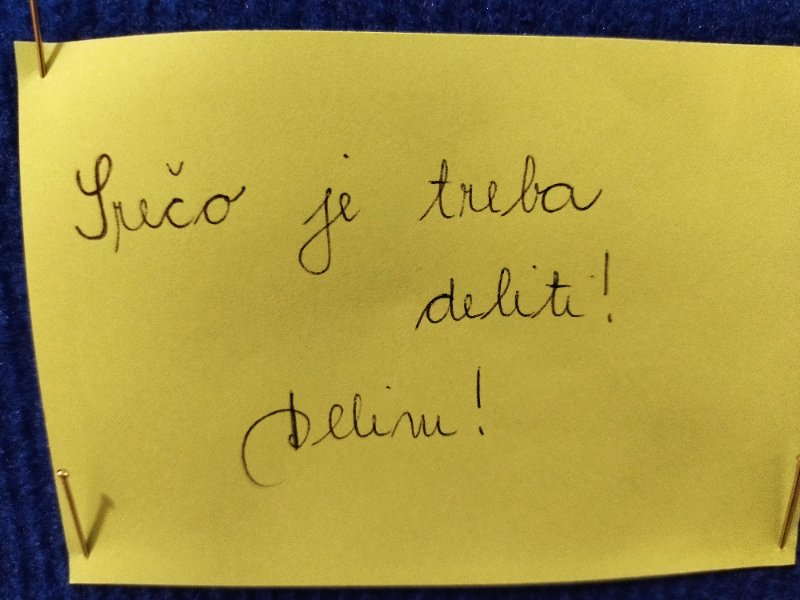 Srečo je treba
deliti!
Delim!